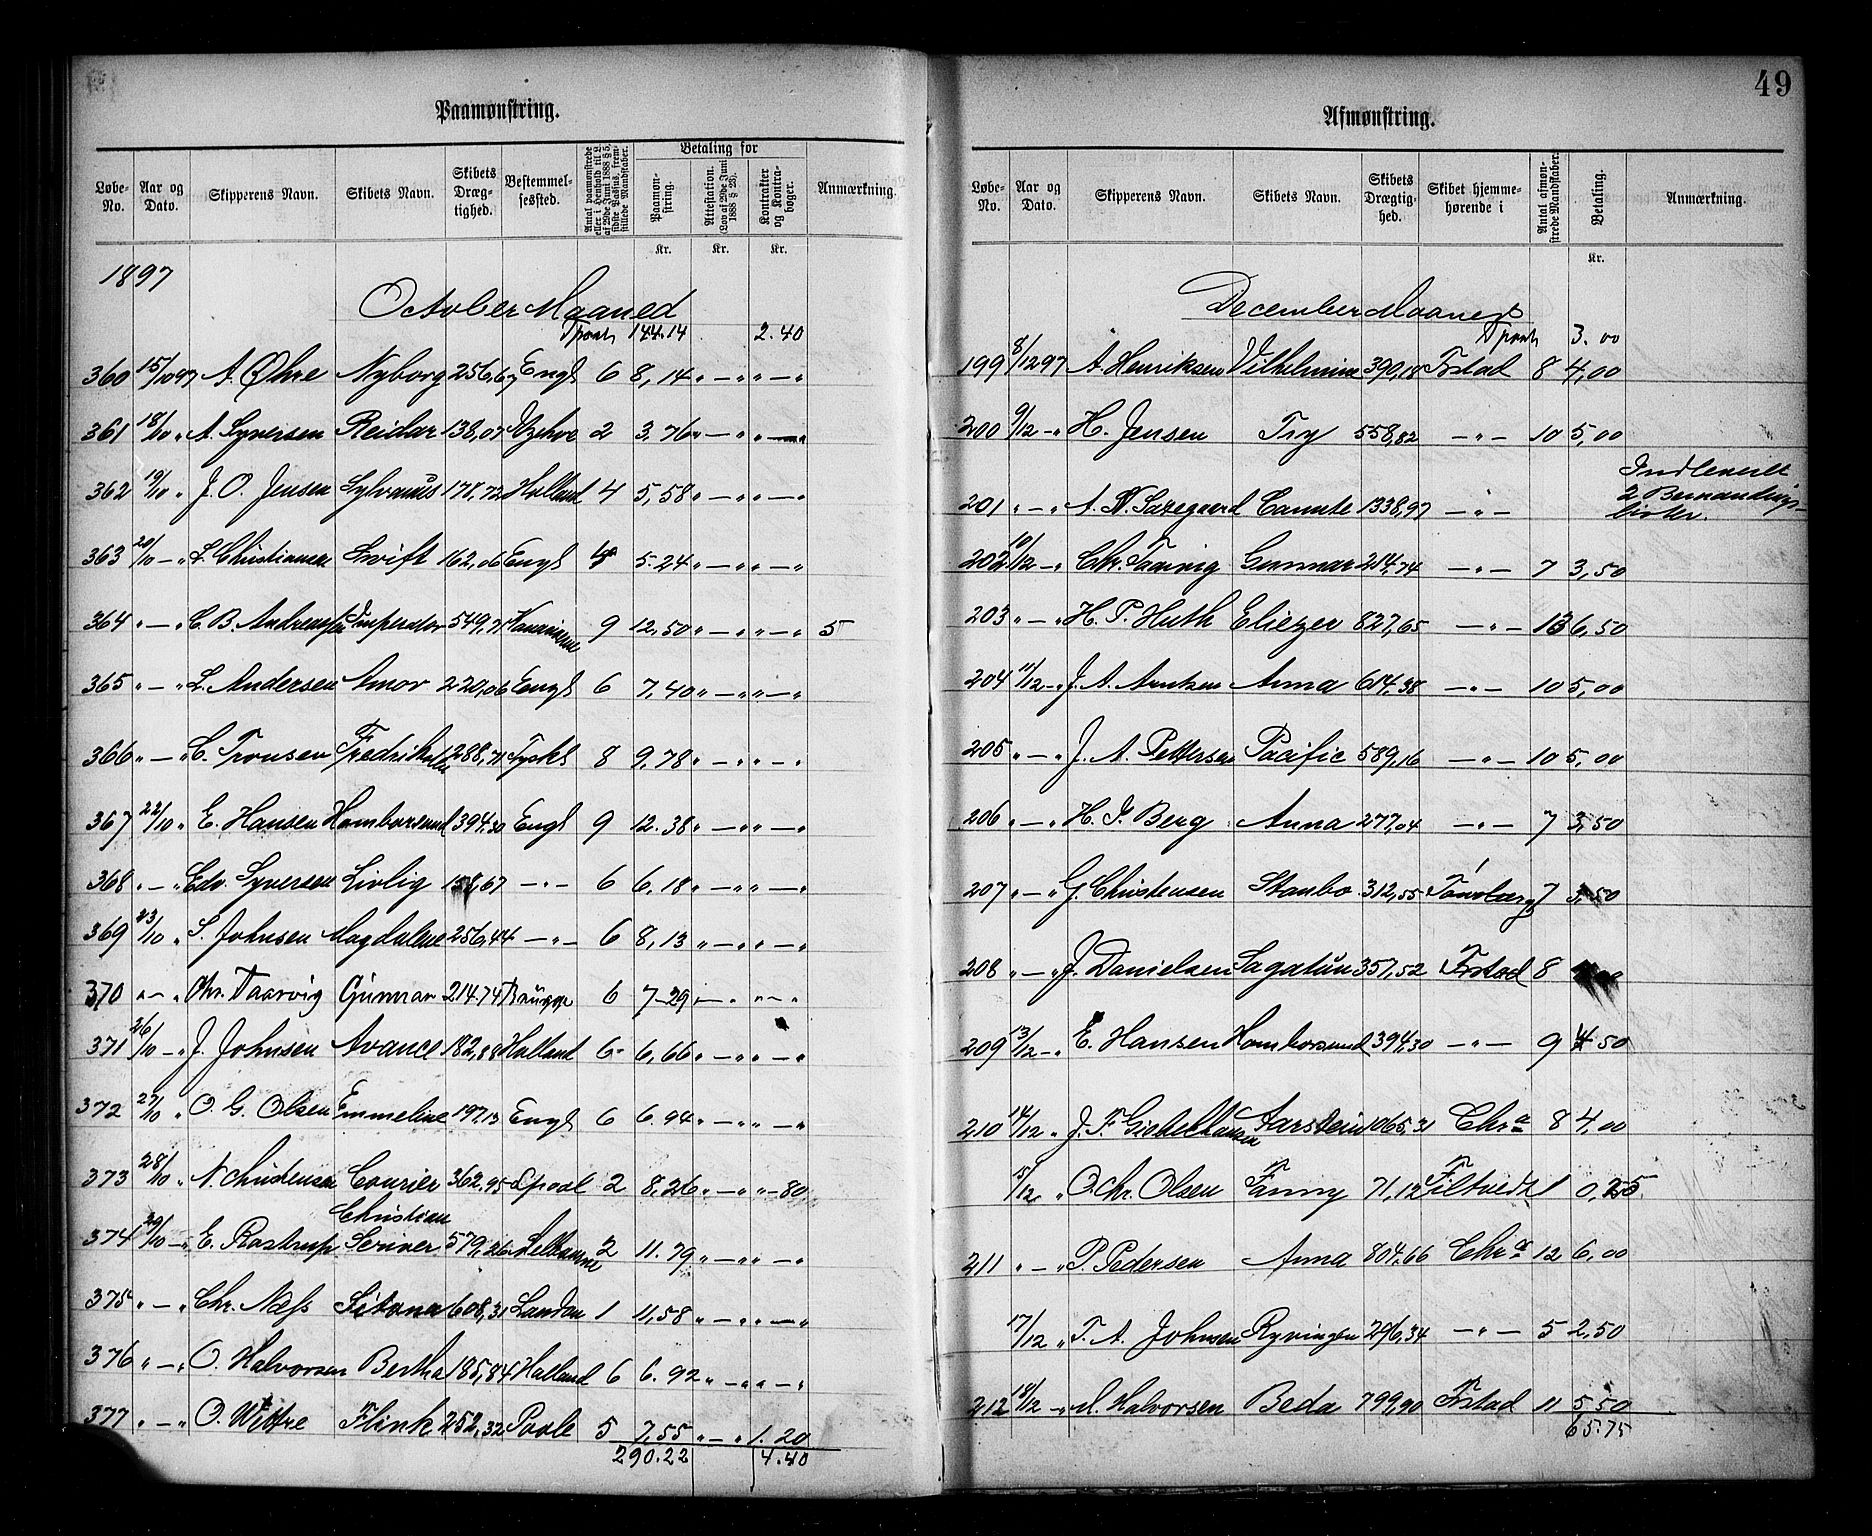 Paamønstring.
Løbe-No. Aar og Dato. Skipperens Navn. Skibets Navn. Skibets Drægtighed. Bestemmelsessted. Antal paamønstrede eller i Henhold til L. af 29de Juni 1888 § 5, sidste Passus, fremstillede Mandskaber. Betaling for Paamønstring. Attestation. (Lov af 29de Juni 1888 § 23). Kontrakter og Kontrabøger. Anmærkning.
Kr. Kr. Kr.
1897
October Maaned
Tpart 144.14 2.40
360 15/10 97 A. Øhre Nyborg 256,67 Engl 6 8,14 " — " " — "
361 18/10 " A. Syversen Reidar 138,07 2 3,76 " — " " — "
362 19/10 " J. O. Jensen Sylvanus 178,72 Holland 4 5,58 " — " " — "
363 20/10 — " L. Christiansen Swift 162,06 Engl 4 5.24 " — " " — "
364 " — " C. B. Andreassen Imperator 549,71 9 12,50 " — " " — " 5
365 " — " L. Andersen Amor 220,06 Engl 6 7,40 " — " " — "
366 " — " C. Tronsen 288,71 Tyskl 8 9,78 " — " " — "
367 22/10 " E. Hansen Homborsund 394,30 Engl 9 12.38 " — " " — "
368 " — " Edv. Syversen Livlig 158,67 — " — 6 6.18 " — " " — "
369 23/10 " S. Johnsen Magdalene 256,44 — " — 6 8,13 " — " " — "
370 " — " Chr. Taarvig Gunnar 214.74 Brügge 6 7-29 " — " " — "
371 26/10 — " J. Johnsen Avance 182,88 Holland 6 6,66 " — " " — "
372 27/10 " O. G. Olsen Emmeline 197,13 Engl 6 6.94 " — " " — "
373 28/10 " N. Christensen Courier 362,95 Lpool 2 8,26 " — " " - 80
374 29/10 — " E. Rostrup Christian Scriver 579,26 2 11.79 " — " " — "
375 " — " Chr. Næss Sitona 608,31 London 1 11,58 " — " " — "
376 " — " O. Halvorsen Bertha 185,84 Holland 6 6.92 " — " " — "
377 " — " O. Wettre Flink 252,32 Poole 5 7,55 " — " 1.20
290.22 4.40
49
Afmønstring.
Løbe-No. Aar og Dato. Skipperens Navn. Skibets Navn. Skibets Drægtighed. Skibet hjemmehørende i Antal afmønstrede Mandskaber. Betaling. Anmærkning.
Kr.
December Maaned
Tpart 3.00
199 8/12 97 A. Henriksen Vilhelmine 390,18 Frstad 8 4,00
200 9/12 — " H. Jensen Try 558,82 — " — 10 5,00
201 " — " A. N. Saxegaard Canute 1338,97 — " — Indleveret 2 Bemandingslister.
202 10/12 — " Chr. Taarvig Gunnar 214,74 — " — 7 3,50
203 " — " H. P. Huth Eliezer 827,65 — " — 13 6,50
204 11/12 — " J. A. Arntzen Anna 614,38 — " — 10 5,00
205 " — " J. A. Pettersen Pacific 589,16 — " — 10 5,00
206 " — " H. J. Berg Anna 277,04 — " — 7 3,50
207 " — " G. Christensen Stanbo 312,55 Tønsberg 7 3,50
208 " — " J. Danielsen Sagatun 357,52 Frstad 8
209 13/12 — " E. Hansen Homborsund 394,30 — " — 9 4.50
210 14/12 " J. F. Aarstein 1065,31 Chra 8 4,00
15/12 " O. Chr. Olsen Fanny 71,12 Filtvedt 1 0,25
211 " — " P. Pedersen Anna 804,66 Chra 12 6,00
17/12 " T. A. Johnsen Ryvingen 296,34 — " — 5 2,50
212 18/12 — " M. Halvorsen Beda 799,90 Frstad 11 5,50
65.75